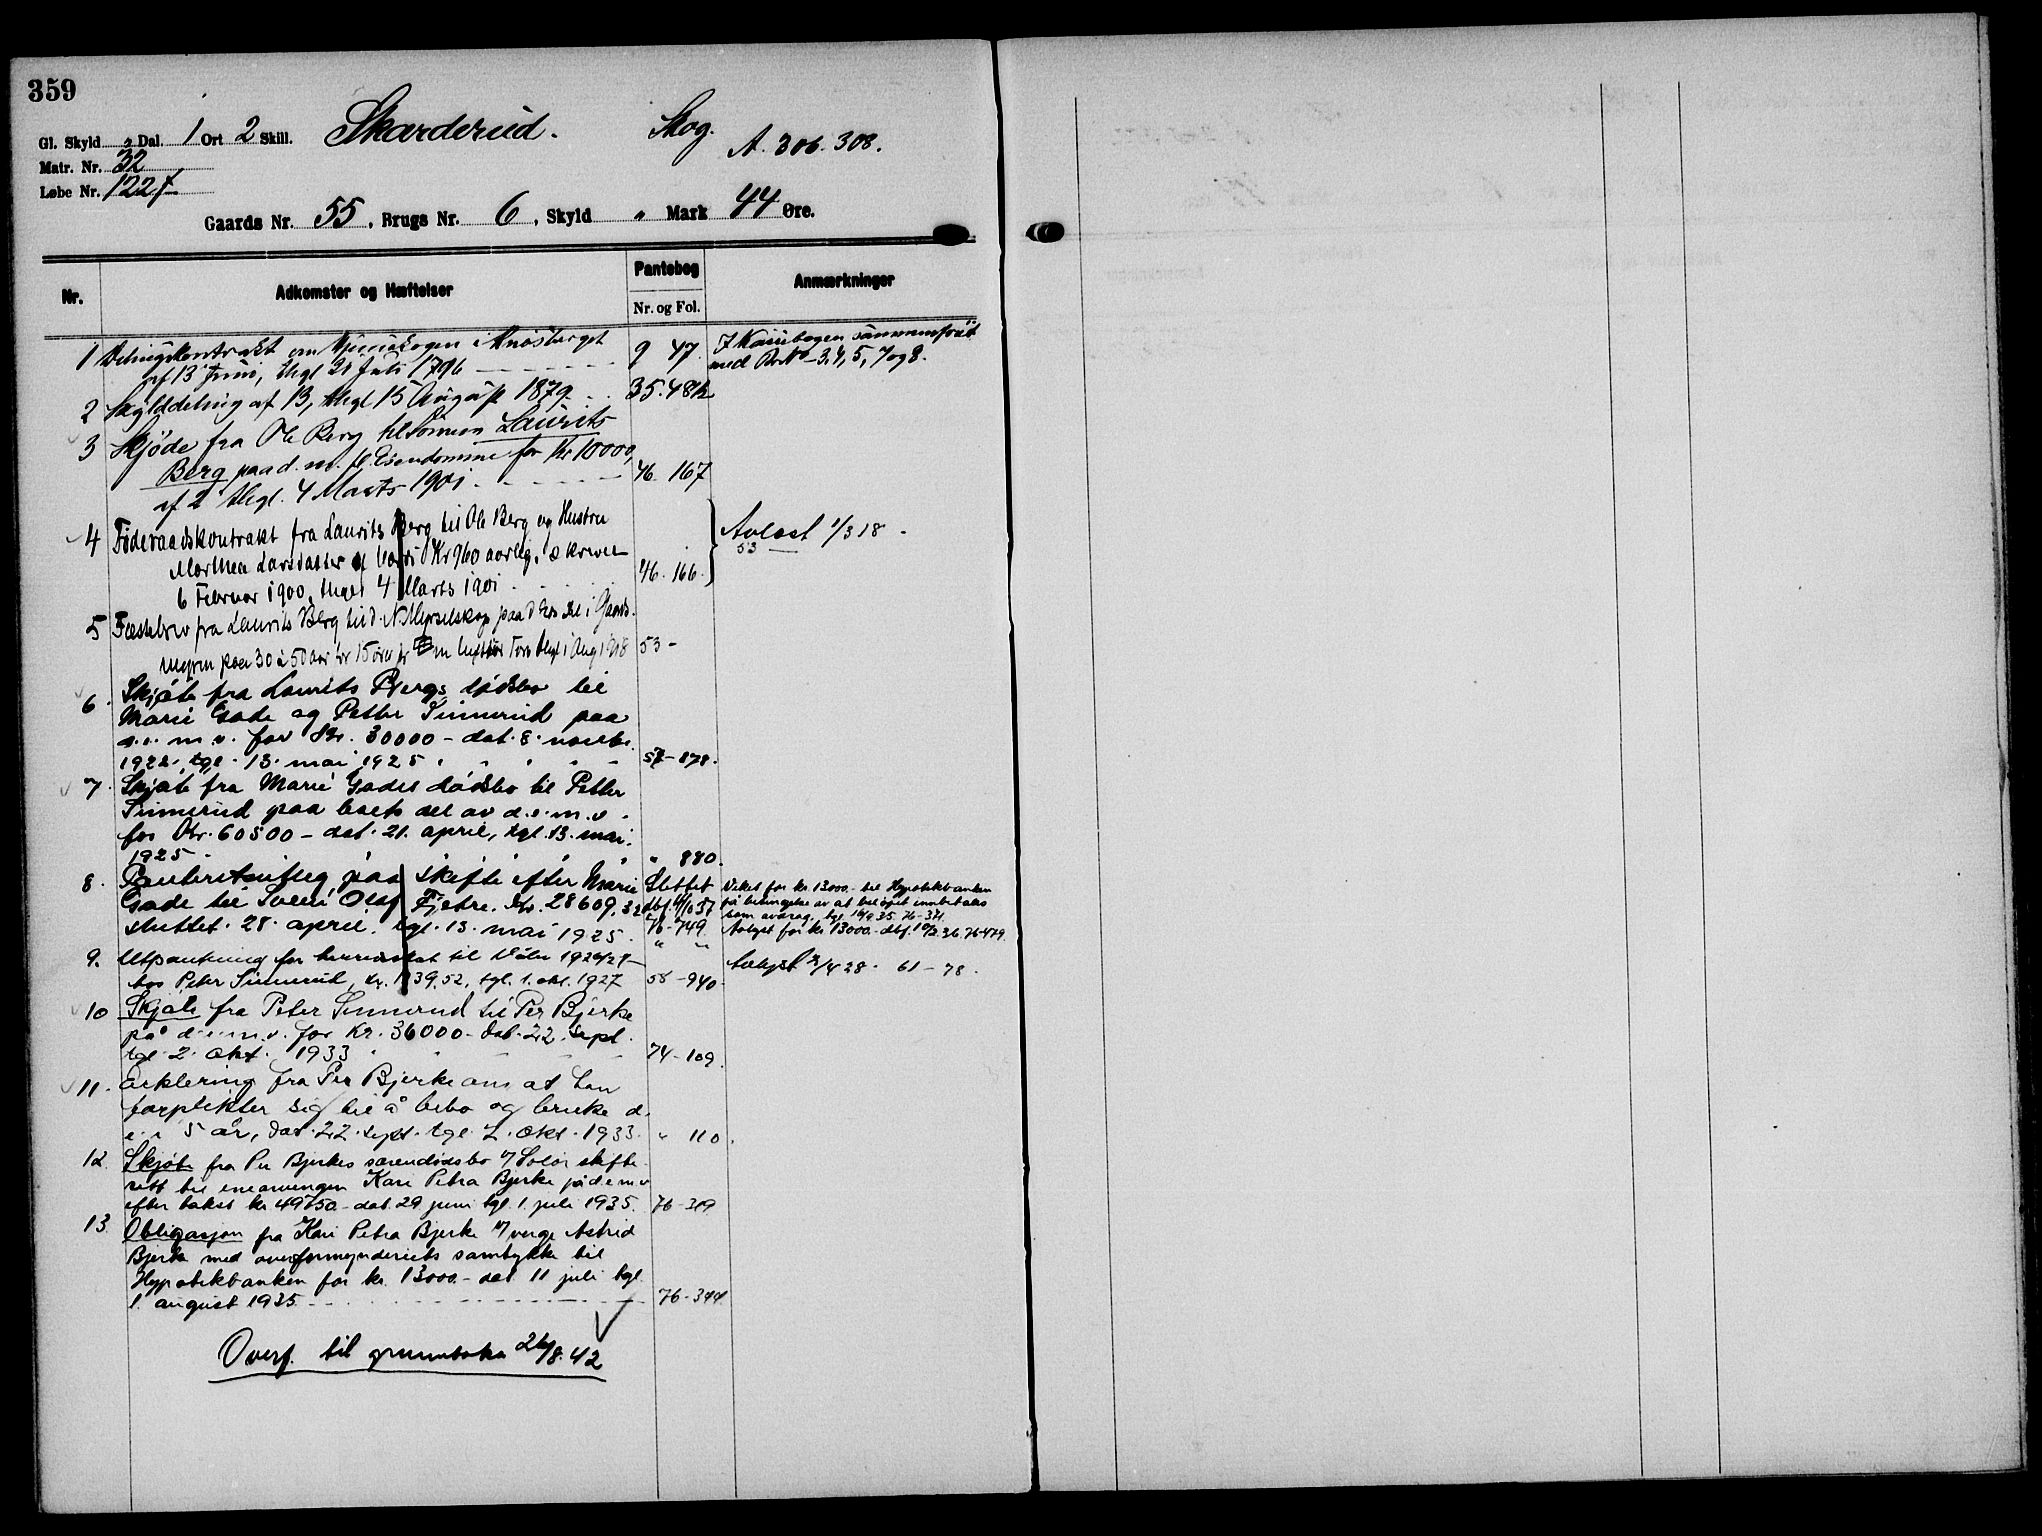 359
Gl. Skyld „ Dal. 1 Ort 2 Skill. Skarderud. Skog. A. 306. 308.
Matr. Nr. 32
Løbe Nr. 122f
Gaards Nr. 55, Brugs Nr. 6, Skyld „ Mark 44 Øre.
Nr. Adkomster og Hæftelser Pantebog Anmærkninger
Nr. og Fol.
1 Delingskontrakt om i 9 47 sammenført
af 13 Juni, thgl 21 Juli 1796 med BrNo 3, 4, 5, 7 og 8.
2 Skylddeling af 13, thgl 15 August 1879 35. 482
3 Skjöde fra Ole Berg til Sönnen Laurits
Berg paa d. m. fl. Eiendomme for Kr 10000,
af 2 thgl. 4 Marts 1901 46. 167
4 Föderaadskontrakt fra Laurits Berg til Ole Berg og Hustru Avlöst 1/3 18
Marthea Larsdatter af Værdi Kr 960 aarlig, skreven 53
6 Februar 1900, thgl 4 Marts 1901 46. 166
5 Fæstebrev fra Laurits Berg til D. N. Myrselskap paa
myren paa 30 à 50 aar for 15 øre pr thgl 1 Aug 1918 53 -
6. Skjøte fra Laurits Bergs dødsbo til
Marie Gade og Petter Sinnerud paa
d. e. m. v. for Kr. 30000 - dat. 8. novbr.
1922, tgl. 13. mai 1925 57 - 878.
7. Skjøte fra Marie Gades dødsbo til Petter
Sinnerud paa boets del av d. e. m. v.
for Kr. 60500 - dat. 21. april, tgl. 13. mai.
1925 „ 880.
8. Panteretsutlæg paa skifte efter Marie Slettet Veket for kr. 13000.- til Hypotekbanken
Gade til Svend Olaf Fjetre. Kr. 28609,32 på betingelse av at beløpet innbetales
sluttet. 28. april. tgl. 13. mai 1925. 76 - 749 som avdrag, tgl 35. 76 - 371.
Avlyst for kr 13000.- dbf. 10/2 36. 76 479.
9. Utpantning for herredsskat til Våler 1926/27 Avlyst 2/4 28. 61 - 78.
hos Peter Sinnerud, kr. 1739,52, tgl. 1. okt. 1927 58 - 940.
10 Skjøte fra Peter Sinnerud til Per Bjerke
på d. e. m. v. for Kr. 36000 - Dat. 22. sept.
tgl. 2. okt. 1933 74 - 109.
11. Erklering fra Per Bjerke om at han
forplikter sig til å bebo og bruke d.
e. i 5 år, Dat. 22. sept. tgl. 2. okt. 1933. „ 110.
12. Skjøte fra Per Bjerkes særendødsbo v/ Solør skifte-
rett til enearvingen Kari Petra Bjerke på d. e. m. v
efter takst kr 49750 - dat. 29 juni tgl. 1. juli 1935. 76 - 319
13. Obligasjon fra Kari Petra Bjerke v/ verge Astrid
Bjerke med overformynderiets samtykke til
Hypotekbanken for kr. 13000.- dat 11 juli tgl
1. august 1935 76 - 344
Overf. til grunnboka 26/8.42